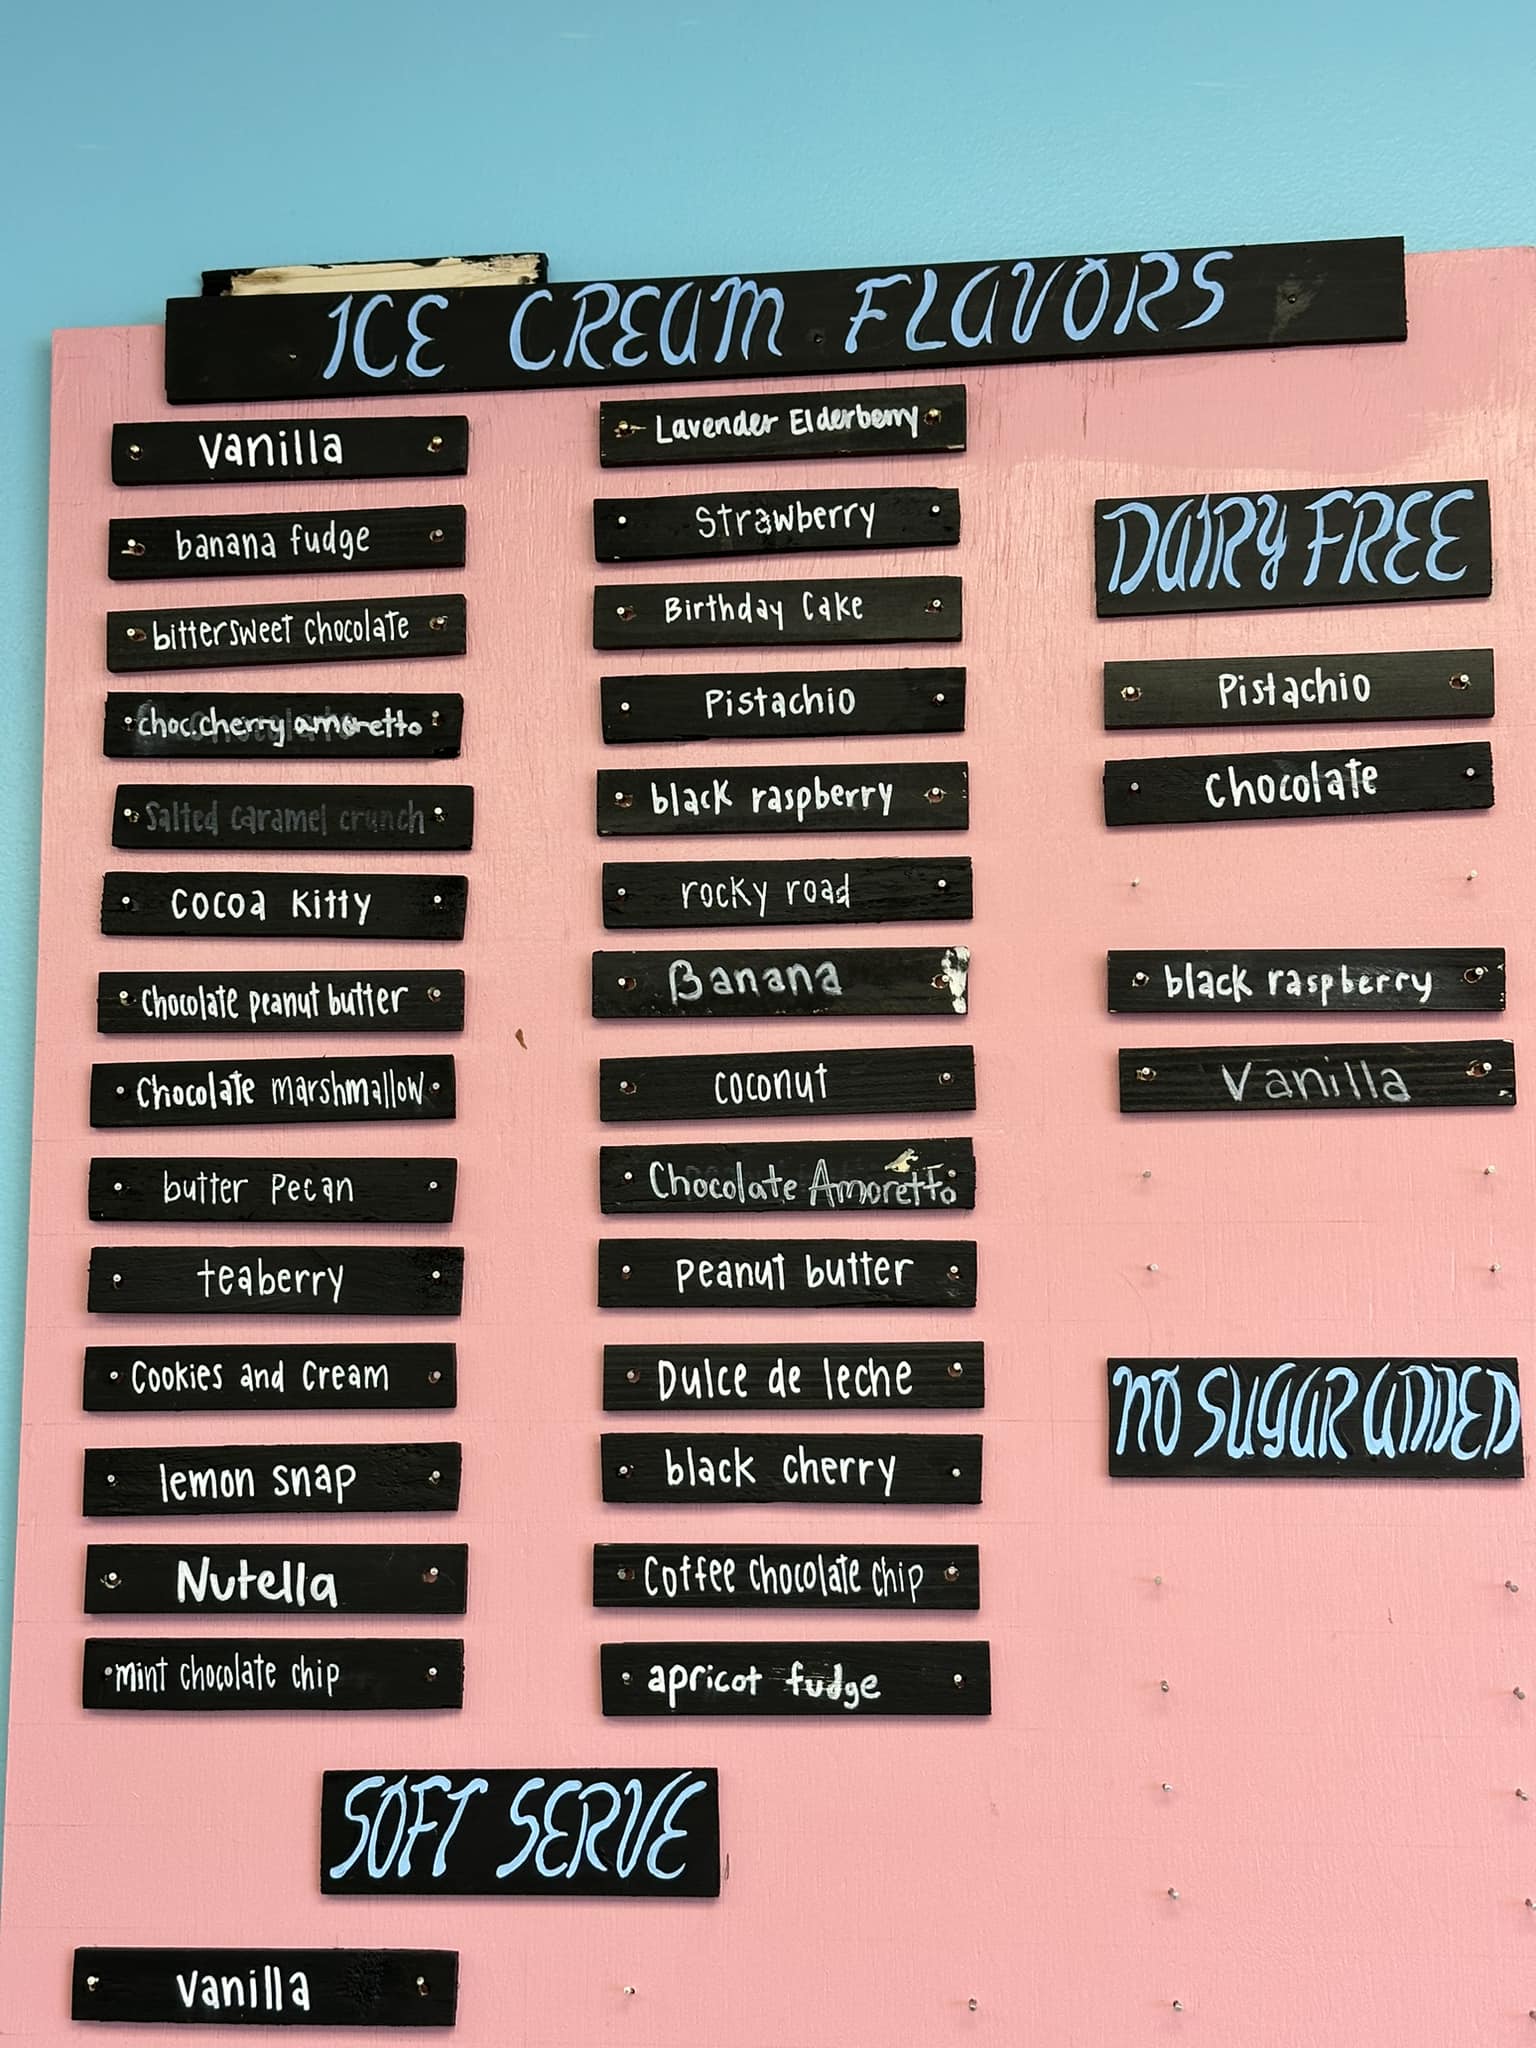 ICE CREAM FLAVORS
Vanilla
banana fudge
bittersweet chocolate
choc.cherry amoretto
Salted caramel crunch
Cocoa Kitty
Chocolate peanut butter
Chocolate marshmallow
butter pecan
teaberry
Cookies and Cream
lemon snap
Nutella
mint chocolate chip
Lavender Elderberry
Strawberry
Birthday Cake
Pistachio
black raspberry
rocky road
Banana
coconut
Chocolate Amoretto
peanut butter
Dulce de leche
black cherry
Coffee chocolate chip
apricot fudge
DAIRY FREE
Pistachio
Chocolate
black raspberry
Vanilla
NO SUGAR ADDED
SOFT SERVE
Vanilla